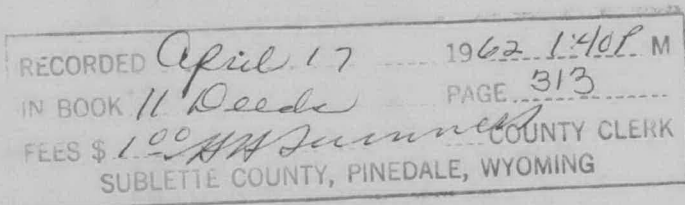 RECORDED April 17 1962 1:40 P M
IN BOOK 11 Deeds PAGE 313
FEES $ 1.00 COUNTY CLERK
SUBLETTE COUNTY, PINEDALE, WYOMING